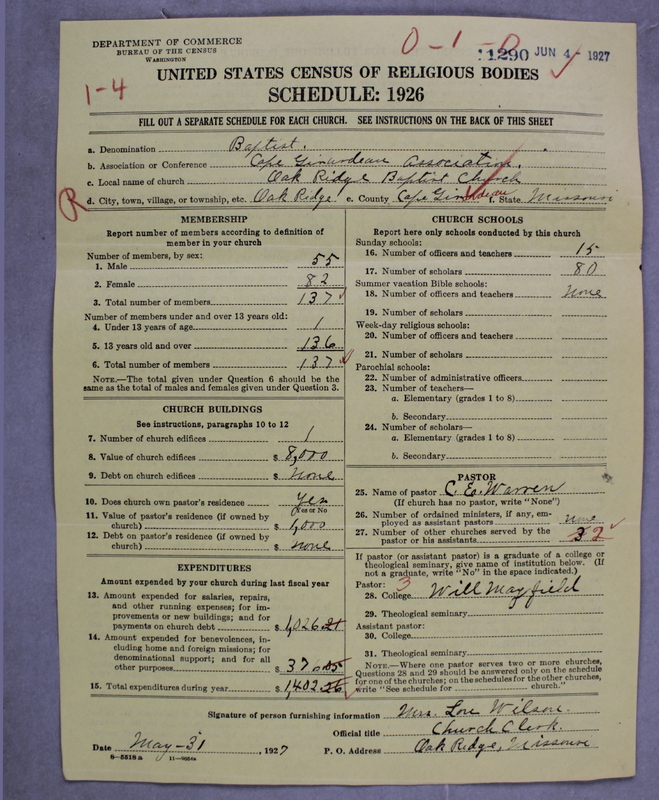 DEPARTMENT OF COMMERCE
BUREAU OF THE CENSUS
WASHINGTON
0-1-0
11290 JUN 4 - 1927
1-4
UNITED STATES CENSUS OF RELIGIOUS BODIES
SCHEDULE: 1926
FILL OUT A SEPARATE SCHEDULE FOR EACH CHURCH. SEE INSTRUCTIONS ON THE BACK OF THIS SHEET
a. Denomination Baptist.
b. Association or Conference Cape Girardeau Association.
c. Local name of church Oak Ridge Baptist Church
R
d. City, town, village, or township, etc. Oak Ridge e. County Cape Girardeau f. State Missouri
MEMBERSHIP
Report number of members according to definition of
member in your church
Number of members, by sex:
1. Male 55
2. Female 82
3. Total number of members 137
Number of members under and over 13 years old:
4. Under 13 years of age 1
5. 13 years old and over 136
6. Total number of members 137
NOTE.—The total given under Question 6 should be the
same as the total of males and females given under Question 3.
CHURCH BUILDINGS
See instructions, paragraphs 10 to 12
7. Number of church edifices 1
8. Value of church edifices $ 8,000
9. Debt on church edifices $ None
10. Does church own pastor's residence Yes
(Yes or No
11. Value of pastor's residence (if owned by
church) $ 1,000
12. Debt on pastor's residence (if owned by
church) $ None
EXPENDITURES
Amount expended by your church during last fiscal year
13. Amount expended for salaries, repairs,
and other running expenses; for im-
provements or new buildings; and for
payments on church debt $ 1,026.21
14. Amount expended for benevolences, in-
cluding home and foreign missions; for
denominational support; and for all
other purposes $
15. Total expenditures during year $ 1,402.26
CHURCH SCHOOLS
Report here only schools conducted by this church
Sunday schools:
16. Number of officers and teachers 15
17. Number of scholars 80
Summer vacation Bible schools:
18. Number of officers and teachers None
19. Number of scholars
Week-day religious schools:
20. Number of officers and teachers
21. Number of scholars
Parochial schools:
22. Number of administrative officers
23. Number of teachers—
a. Elementary (grades 1 to 8)
b. Secondary
24. Number of scholars—
a. Elementary (grades 1 to 8)
b. Secondary
PASTOR
25. Name of pastor C. E. Warren
(If church has no pastor, write "None")
26. Number of ordained ministers, if any, em-
ployed as assistant pastors None
27. Number of other churches served by the
pastor or his assistants 3 2
If pastor (or assistant pastor) is a graduate of a college or
theological seminary, give name of institution below. (If
not a graduate, write "No" in the space indicated.)
Pastor: 3
28. College Will Mayfield
29. Theological seminary
Assistant pastor:
30. College
31. Theological seminary
NOTE.—Where one pastor serves two or more churches,
Questions 28 and 29 should be answered only on the schedule
for one of the churches; on the schedules for the other churches,
write "See schedule for church."
Signature of person furnishing information Mrs. Lou Wilson
Official title Church Clerk.
Date May-31, 1927 P. O. Address Oak Ridge, Missouri
8-5518a